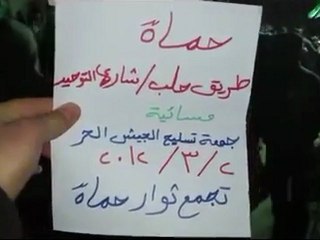 حماة
طريق حلب/شارع التوحيد
مسائية
جمعة تسليح الجيش الحر
٢/٣/٢٠١٢
تجمع ثوار حماة